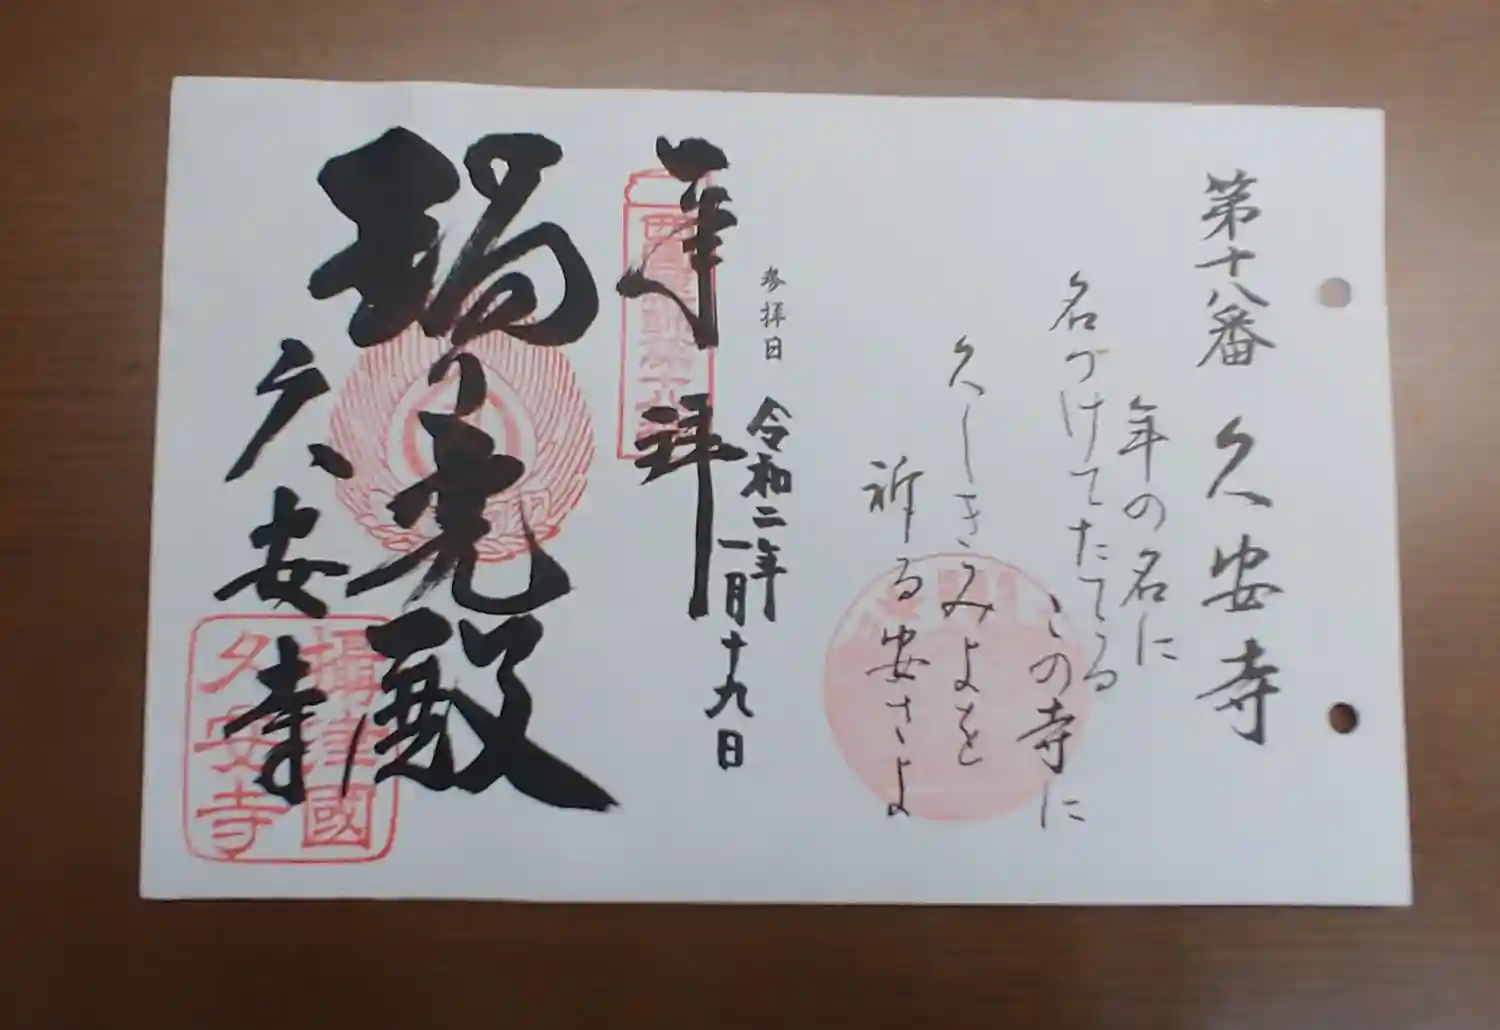 第十八番 久安寺
年の名に
名づけてたてる
この寺に
久しきみよを
祈る安さよ
参拝日
令和二年
一月十九日
奉拝
瑞光殿
久安寺
攝津國
久安寺